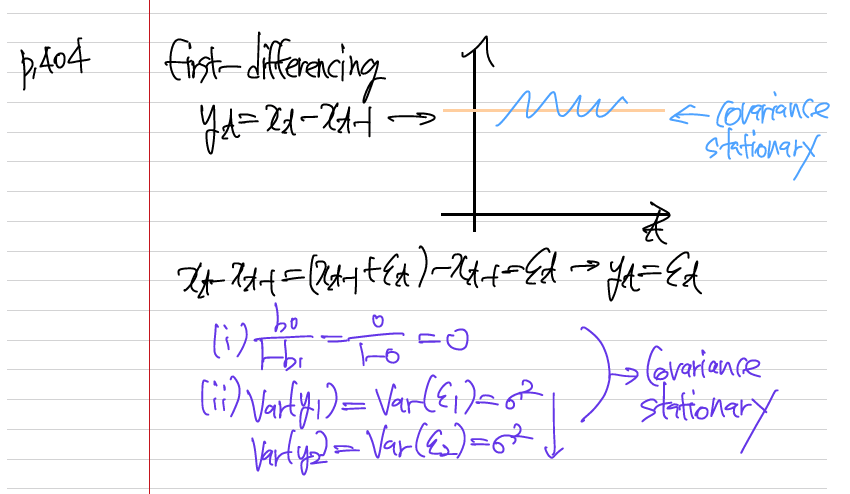 p.404
first-differencing
y_t = x_t - x_{t-1} →
← Covariance
stationary
t
x_t - x_{t-1} = (x_{t-1} + ε_t) - x_{t-1} = ε_t → y_t = ε_t
(i) b0/(1-b1) = 0/(1-0) = 0
(ii) Var(y1) = Var(ε1) = σ²
Var(y2) = Var(ε2) = σ² ↓
→ Covariance
stationary